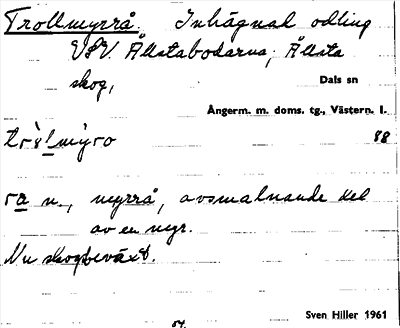 Trollmyrrå. Inhägnad odling
VSV. Ållstabodarna, Ållsta
skog,
Dals sn
Ångerm. m. doms. tg., Västern. l.
88
ra n., myrrå, avsmalnande del
av en myr.
Nu skogbeväxt.
Sven Hiller 1961